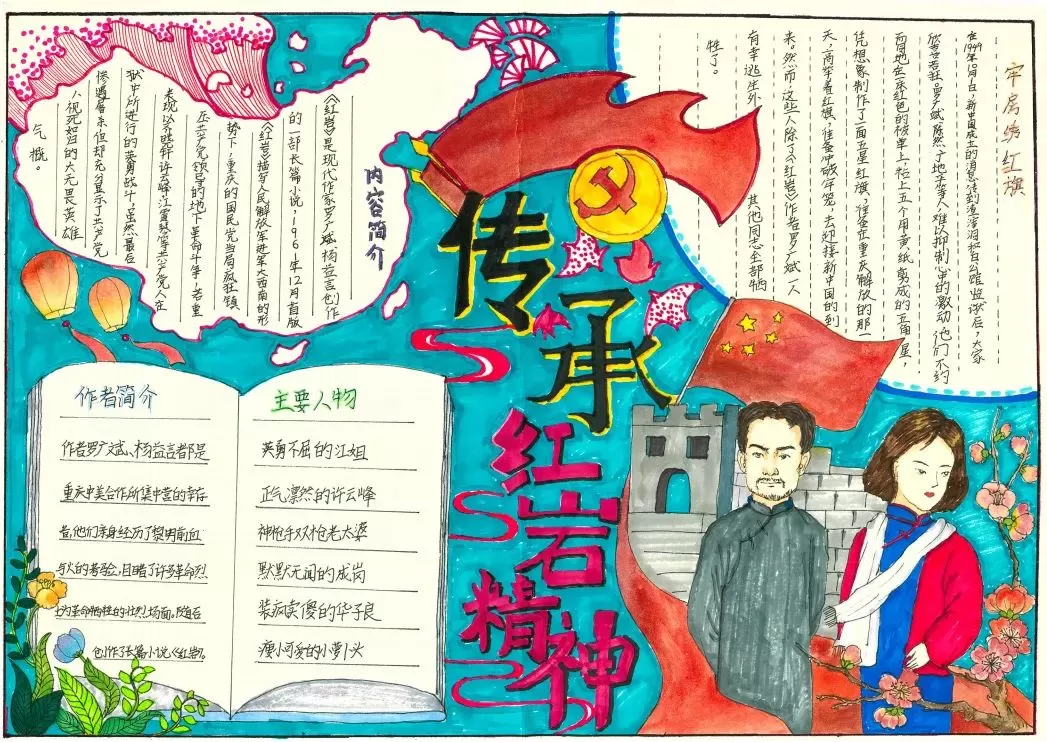 牢房绣红旗
在1949年10月1日,新中国成立的消息传到渣滓洞和白公馆监狱后,大家
欣喜若狂。罗广斌、陈然、丁地平等人难以抑制心中的激动,他们不约
而同地在一床红色的被单上,粘上五个用黄纸剪成的五角星,
凭想象制作了一面五星红旗,准备在重庆解放的那一
天,高举着红旗,准备冲破牢笼,去迎接新中国的到
来。然而这些人除了《红岩》作者罗广斌一人
有幸逃生外,其他同志全部牺
牲了。
内容简介
《红岩》是现代作家罗广斌、杨益言创作
的一部长篇小说,1961年12月首版
《红岩》描写人民解放军进军大西南的形
势下,重庆的国民党当局疯狂镇
压共产党领导的地下革命斗争,着重
表现以齐晓轩、许云峰、江雪琴等共产党人在
狱中所进行的英勇战斗,虽然最后
惨遭屠杀但却充分显示了共产党
人视死如归的大无畏英雄
气概。
传承
红岩
精神
作者简介
作者罗广斌、杨益言都是
重庆中美合作所集中营的幸存
者,他们亲身经历了黎明前血
与火的考验,目睹了许多革命烈
士为革命牺牲的壮烈场面。随后
创作了长篇小说《红岩》。
主要人物
英勇不屈的江姐
正气凛然的许云峰
神枪手双枪老太婆
默默无闻的成岗
装疯卖傻的华子良
瘦小可爱的小萝卜头